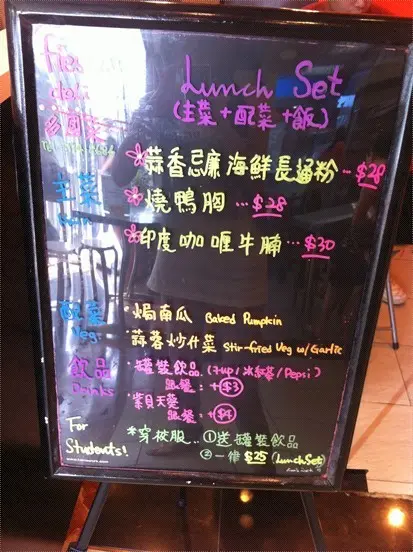 Lunch Set
(主菜+配菜+飯)
多國菜
主菜
蒜香忌廉海鮮長通粉 -- $28
燒鴨胸 ... $28
印度咖喱牛腩 ... $30
配菜
Vegs
焗南瓜 Baked Pumpkin
蒜蓉炒什菜 Stir-fried Veg w/ Garlic
飲品
Drinks
罐裝飲品 (7up / 冰紅茶 / Pepsi)
跟餐: +$3
紫貝天葵
跟餐: +$4
For Students!
*穿校服... ①送罐裝飲品
② 一律 $25 (Lunch Set)